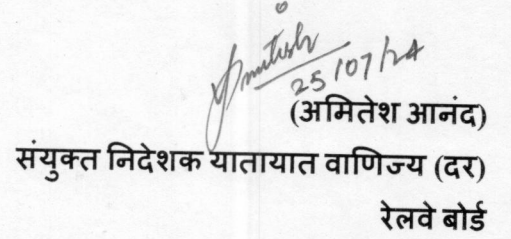 Amitesh
25/07/24
(अमितेश आनंद)
संयुक्त निदेशक यातायात वाणिज्य (दर)
रेलवे बोर्ड